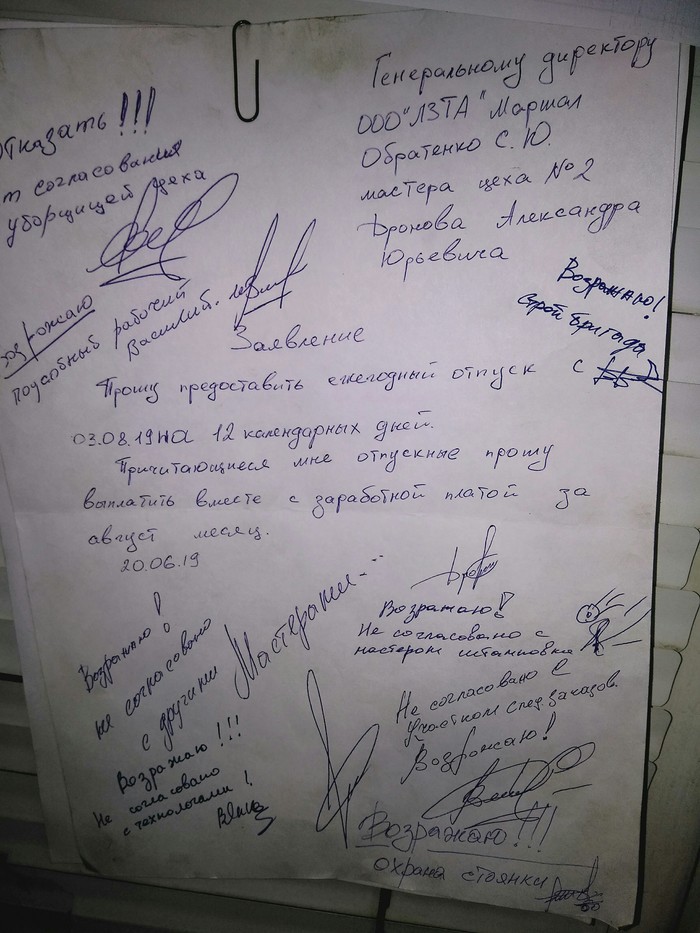 Генеральному директору
ООО "ЛЗТА "Маршал
Обратенко С. Ю.
мастера цеха №2
Дронова Александра
Юрьевича
Отказать!!!
согласования
уборщицей цеха
Возрожаю
подсобный рабочий
Василий.
Возражаю!
Строй бригада
Заявление
Прошу предоставить ежегодный отпуск с
03.08.19 на 12 календарных дней.
Причитающиеся мне отпускные прошу
выплатить вместе с заработной платой за
август месяц.
20.06.19
Возражаю!
не согласовано
с другими Мастерами...
Возражаю!
Не согласовано с
мастером штамповки
Не согласовано с
Участком спец. заказов.
Возрожаю!
Возражаю!!!
Не согласовано
с технологами!
Возражаю!!!
охрана стоянки